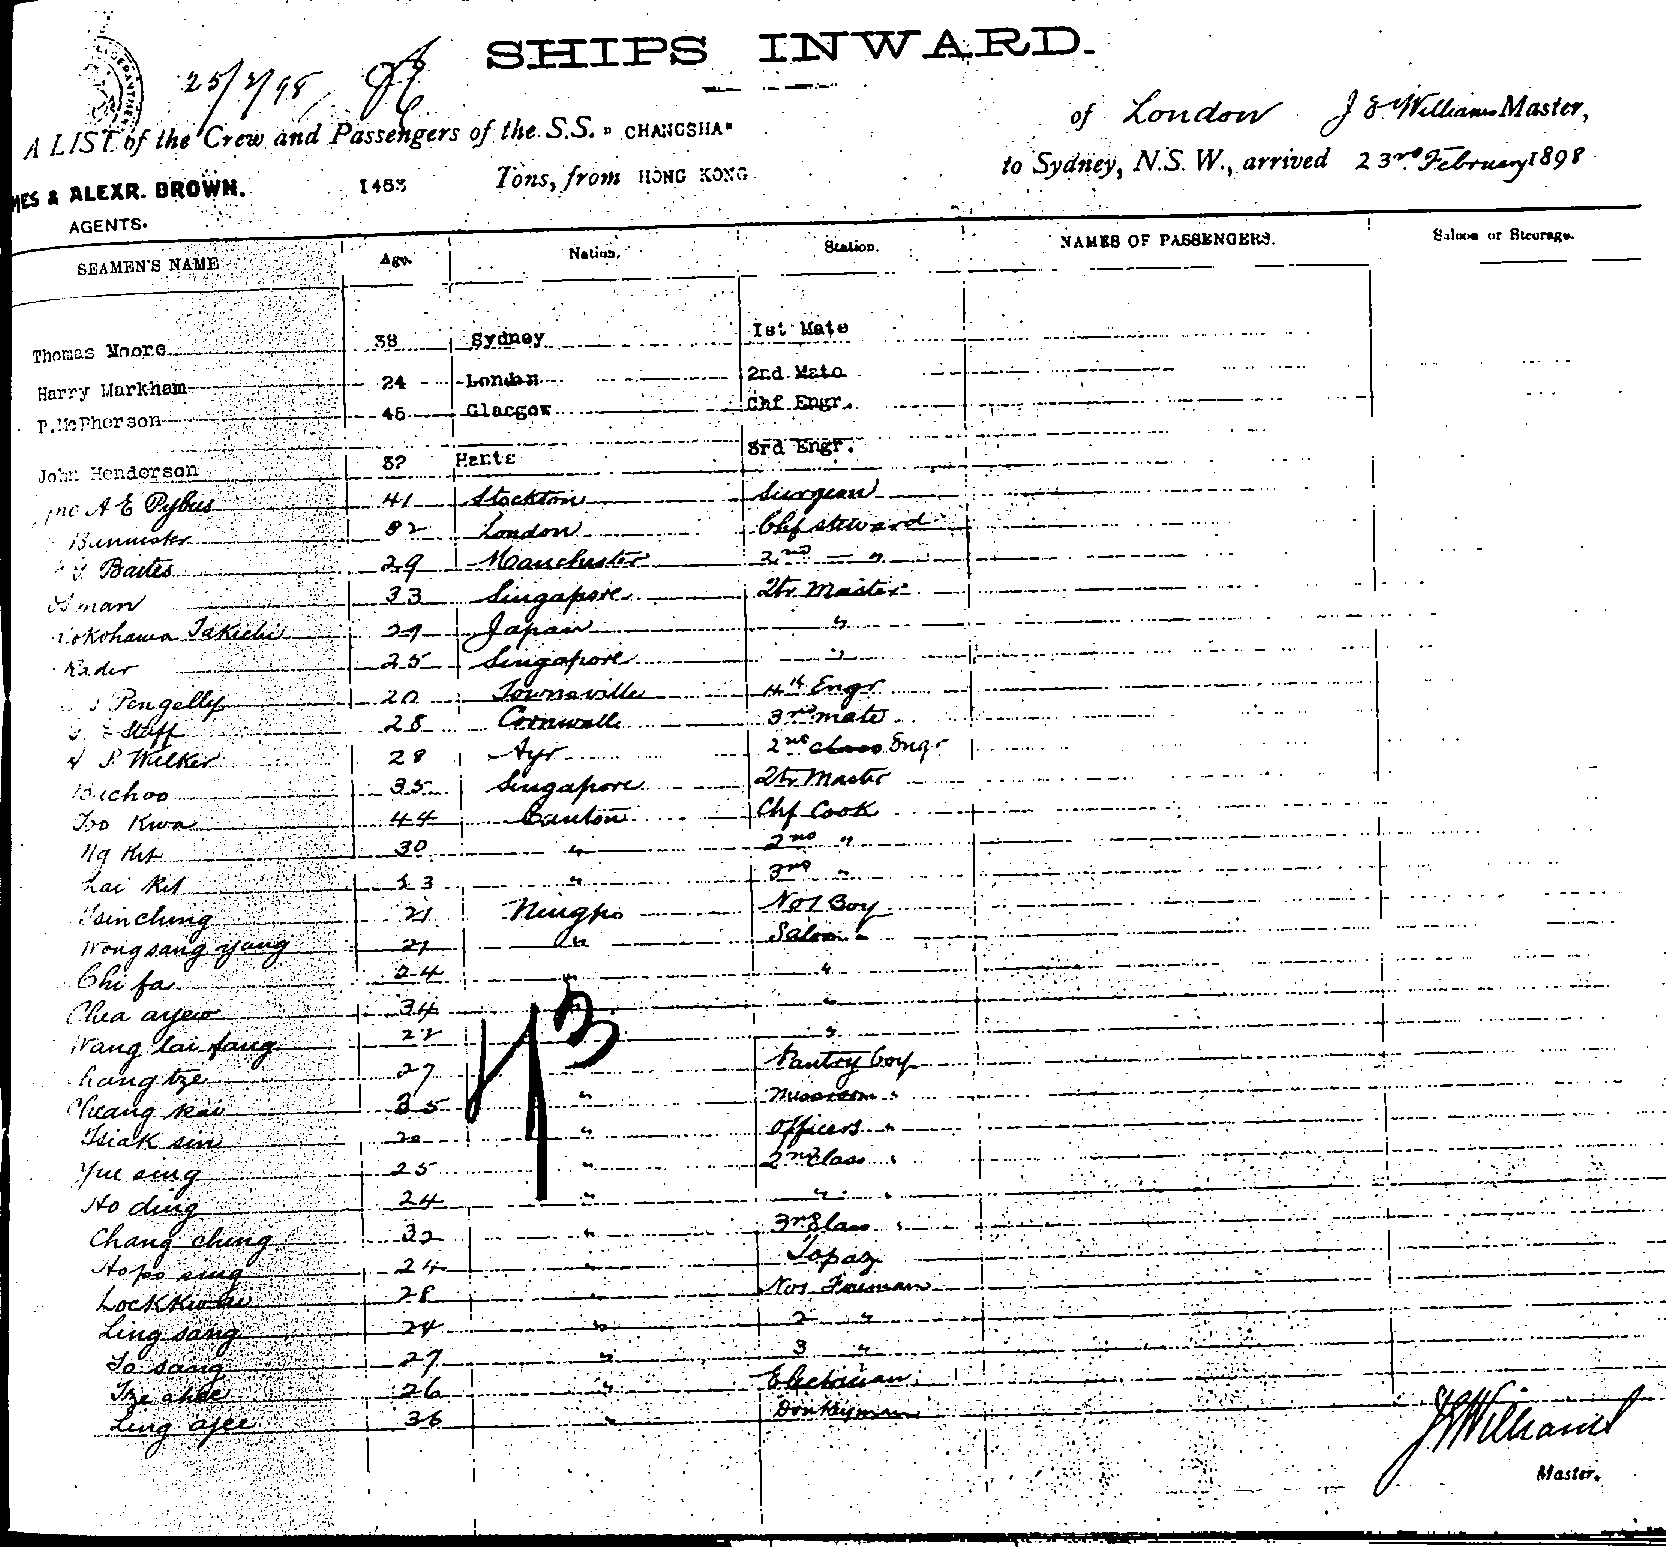 SHIPS INWARD.
25/2/98
A LIST of the Crew and Passengers of the S.S. "CHANGSHA" of London J E Williams Master,
MES & ALEXR. BROWN. 1463 Tons, from HONG KONG to Sydney, N.S.W., arrived 23rd February 1898
AGENTS.
SEAMEN'S NAME Age. Nation. Station. NAMES OF PASSENGERS. Saloon or Steerage.
Thomas Moore 38 Sydney 1st Mate
Harry Markham 24 London 2nd Mate
P. McPherson 45 Glasgow Chf Engr.
John Henderson 32 Hants 3rd Engr.
A E Pybus 41 Stockton Surgeon
Bannister 32 London Chf Steward
Bates 29 Manchester 2nd — "
Osman 33 Singapore Qtr Master
Yokohawa Takichi 29 Japan "
Kader 25 Singapore "
Pengelly 20 Townsville 4th Engr
Staff 28 Cornwall 3rd mate
P Walker 28 Ayr 2nd class Engr
Buchoo 35 Singapore Qtr Master
Too Kwa 44 Canton Chf Cook
Ng Kit 30 " 2nd "
Lai Kit 33 " 3rd "
Tsin ching 21 Ningpo No1 Boy
Wong sang yung 21 " Saloon "
Chi fa 24 " "
Chea ayew 34 " "
Wang lai fang 22 "
hang tze 27 Pantry boy
Chuang kai 35 " Messroom "
Tsiak sin 20 " Officers "
Yue sing 25 " 2nd Class "
Ho ding 24 " " "
Chang ching 32 " 3rd Class "
Ho po sing 24 " Topaz
Lock Kwai 28 " No1 Fireman
Ling sang 24 " 2 "
To sang 27 " 3 "
Tze ahee 26 " Electrician
Ling ajee 36 " Donkeyman
J E Williams
Master.